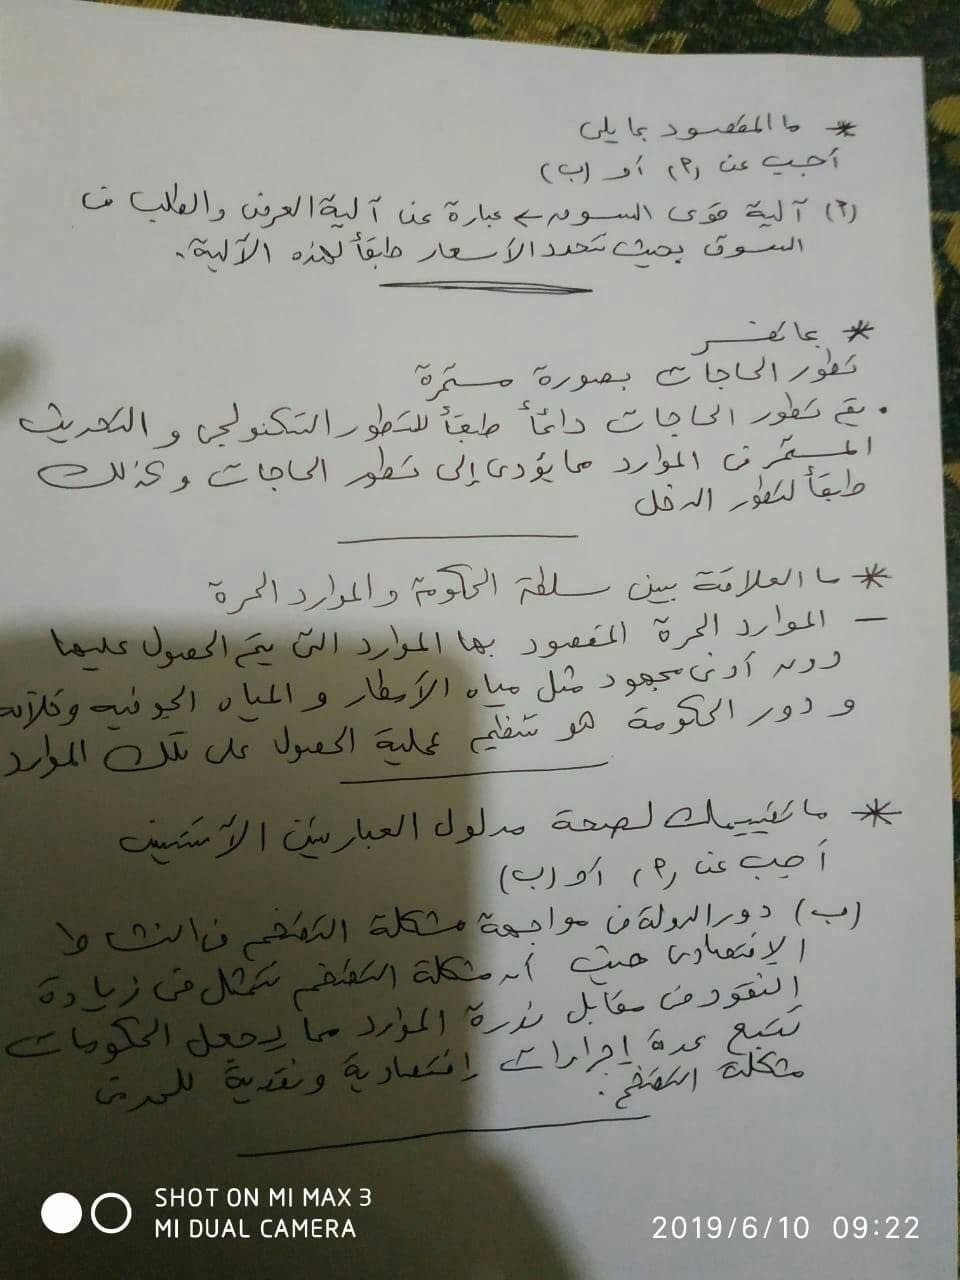 * ما المقصود بما يلى
أجب عن (أ) أو (ب)
(أ) آلية قوى السوق عبارة عن آلية العرض والطلب فى
السوق بحيث تتحدد الأسعار طبقاً لهذه الآلية.
* بما تفسر
تطور الحاجات بصورة مستمرة
. يتم تطور الحاجات دائماً طبقاً للتطور التكنولجى و التحديث
المستمر فى الموارد مما يؤدى إلى تطور الحاجات وكذلك
طبقاً لتطور الدخل
* ما العلاقة بين سلطة الحكومة والموارد الحرة
– الموارد الحرة المقصود بها الموارد التى يتم الحصول عليها
دون أدنى مجهود مثل مياه الأمطار و المياه الجوفيه
و دور الحكومة هو تنظيم عملية الحصول على تلك الموارد
* ما تقييمك لصحة مدلول العبارتين الآتيتين
أجب عن (أ) أو (ب)
(ب) دور الدولة فى مواجهة مشكلة التضخم فى النشاط
الإقتصادى حيث أن مشكلة التضخم تتمثل فى زيادة
النقود فى مقابل ندرة الموارد مما يجعل الحكومات
تتبع عدة إجراءات إقتصادية ونقدية للحد من
مشكلة التضخم.
SHOT ON MI MAX 3
MI DUAL CAMERA
2019/6/10 09:22